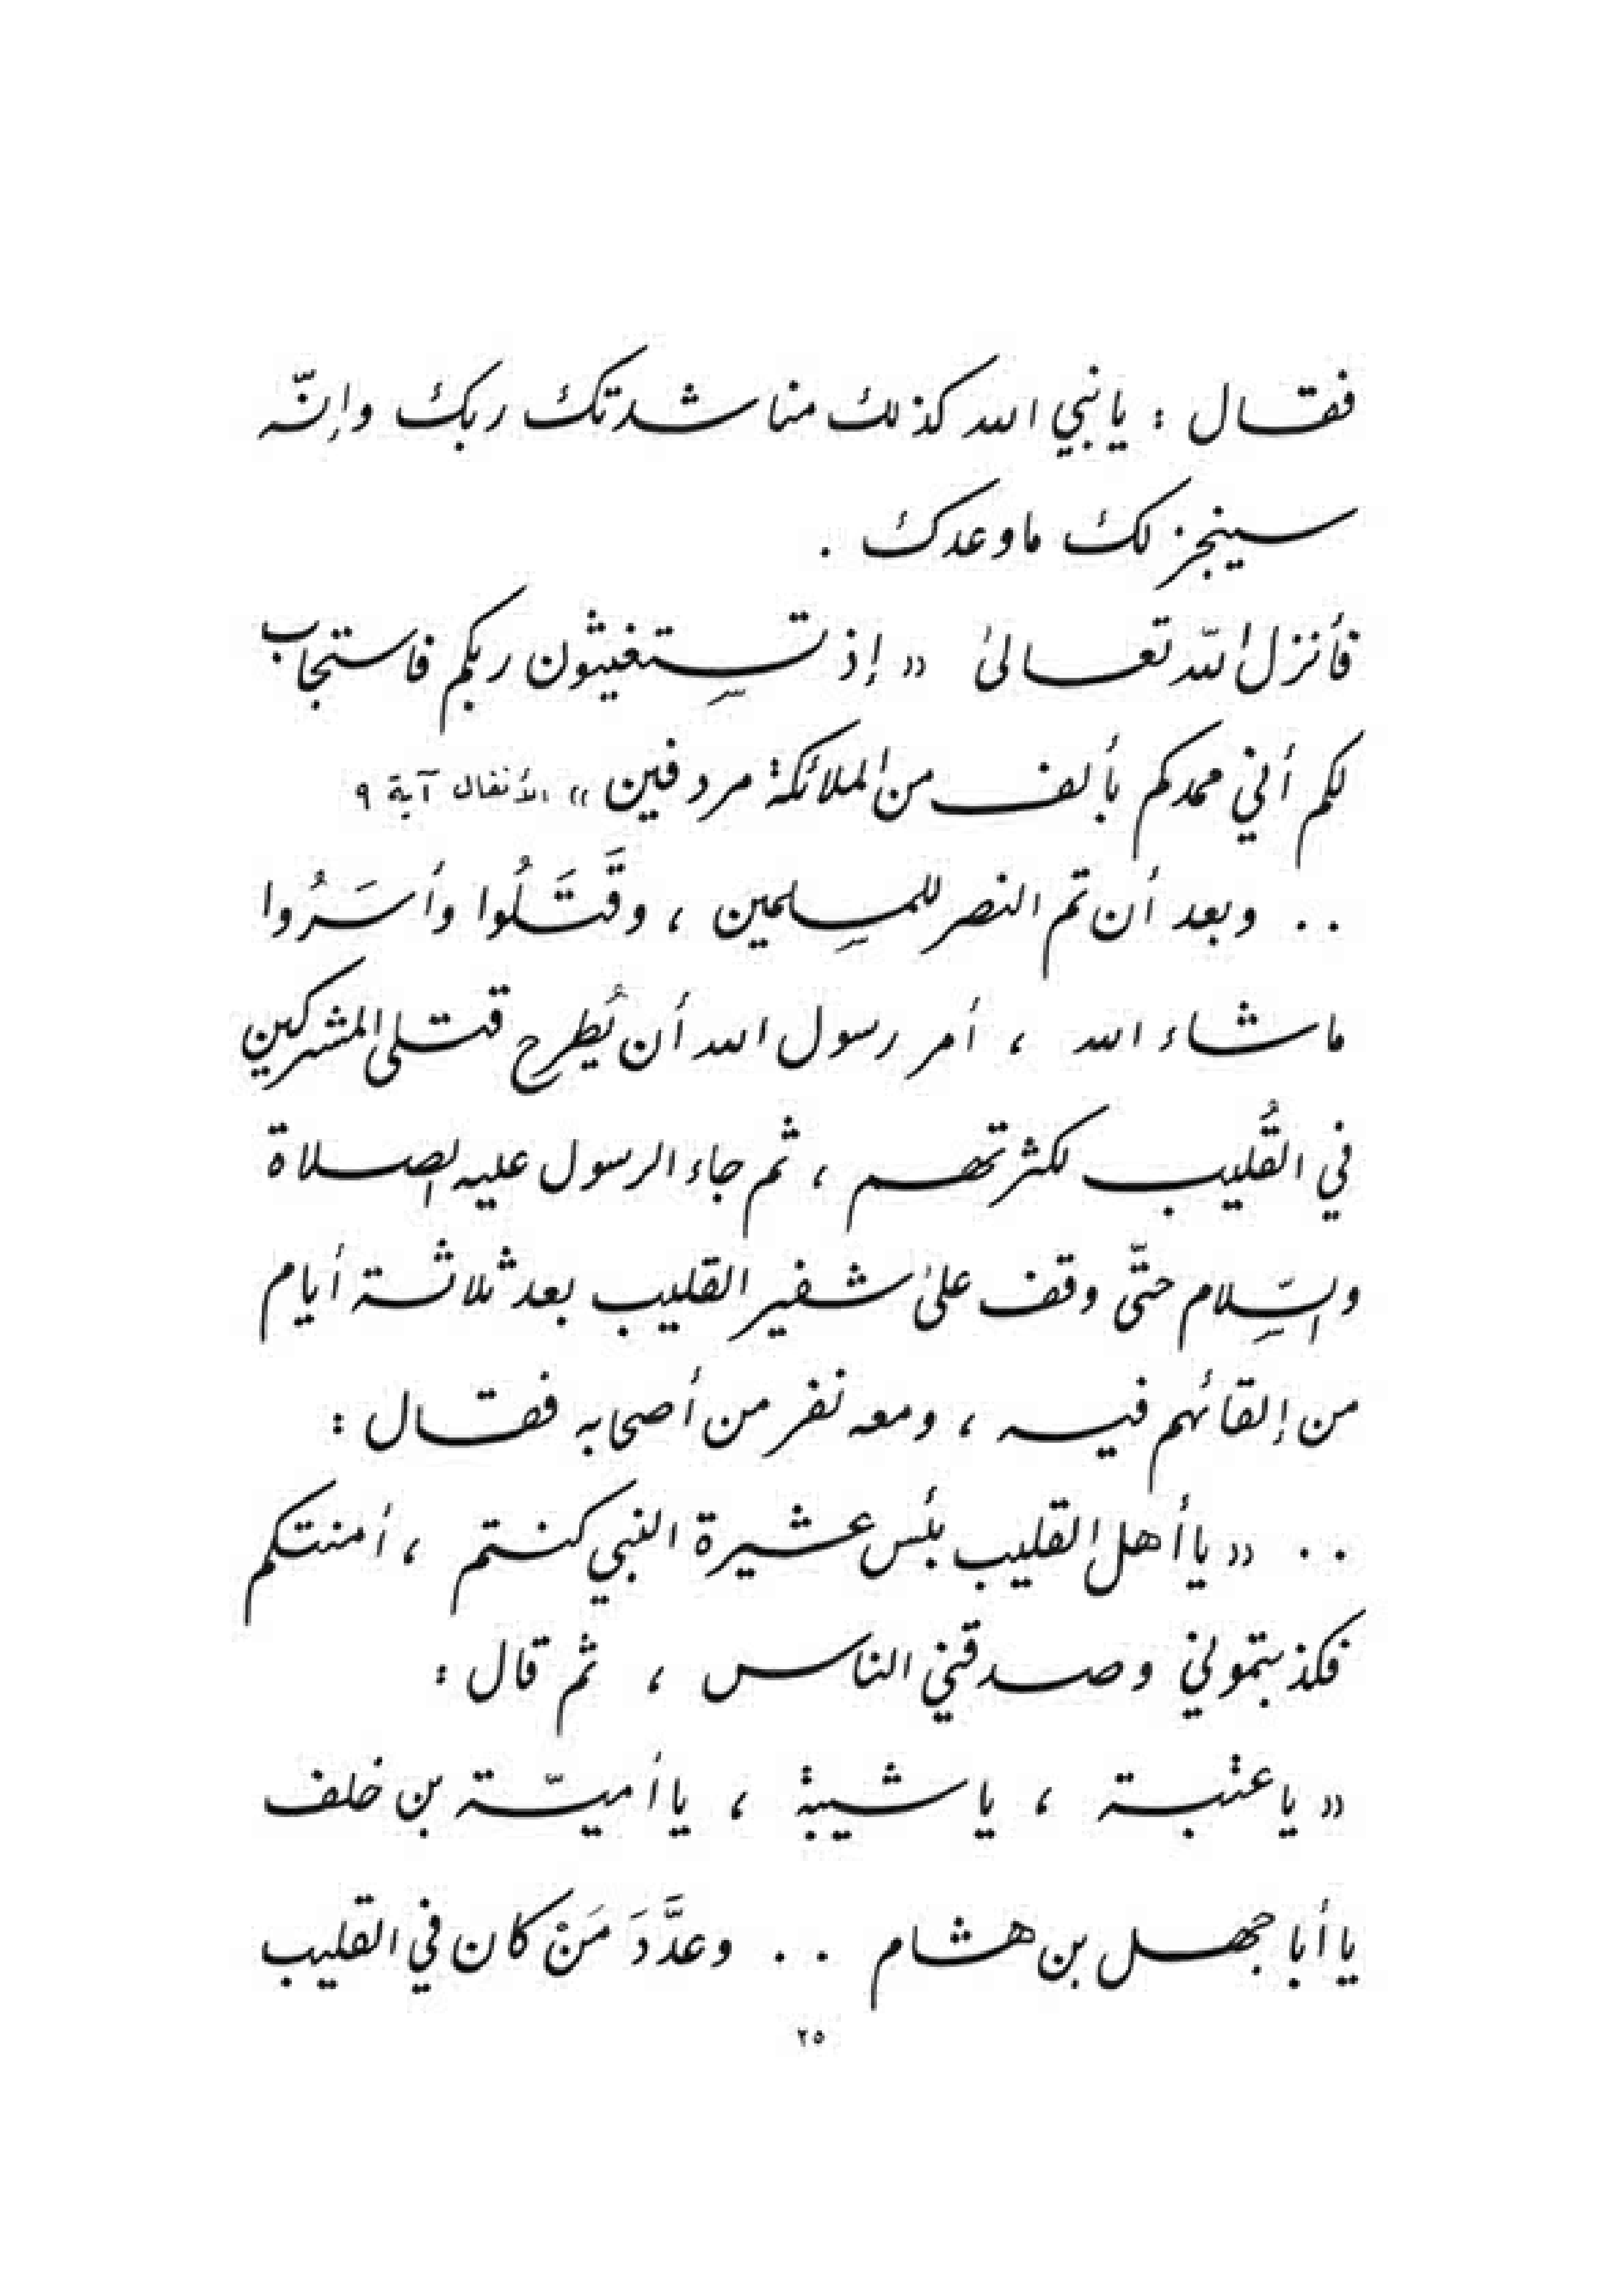 فقال : يا نبي الله كذلك مناشدتك ربك وإنّه
سينجز لك ما وعدك .
فأنزل الله تعالىٰ « إذ تستغيثون ربكم فاستجاب
لكم أني ممدكم بألف من الملائكة مردفين » الأنفال آية ٩
.. وبعد أن تم النصر للمسلمين ، وقَتَلُوا وأَسَرُوا
ما شاء الله ، أمر رسول الله أن يُطرح قتلى المشركين
في القُليب لكثرتهم ، ثم جاء الرسول عليه الصلاة
والسّلام حتّى وقف علىٰ شفير القليب بعد ثلاثة أيام
من إلقائهم فيه ، ومعه نفر من أصحابه فقال :
.. « يا أهل القليب بئس عشيرة النبي كنتم ، أمنتكم
فكذبتموني وصدقني الناس ، ثم قال :
« يا عتبة ، يا شيبة ، يا أميّة بن خلف
يا أبا جهل بن هشام .. وعدَّدَ مَنْ كان في القليب
٢٥